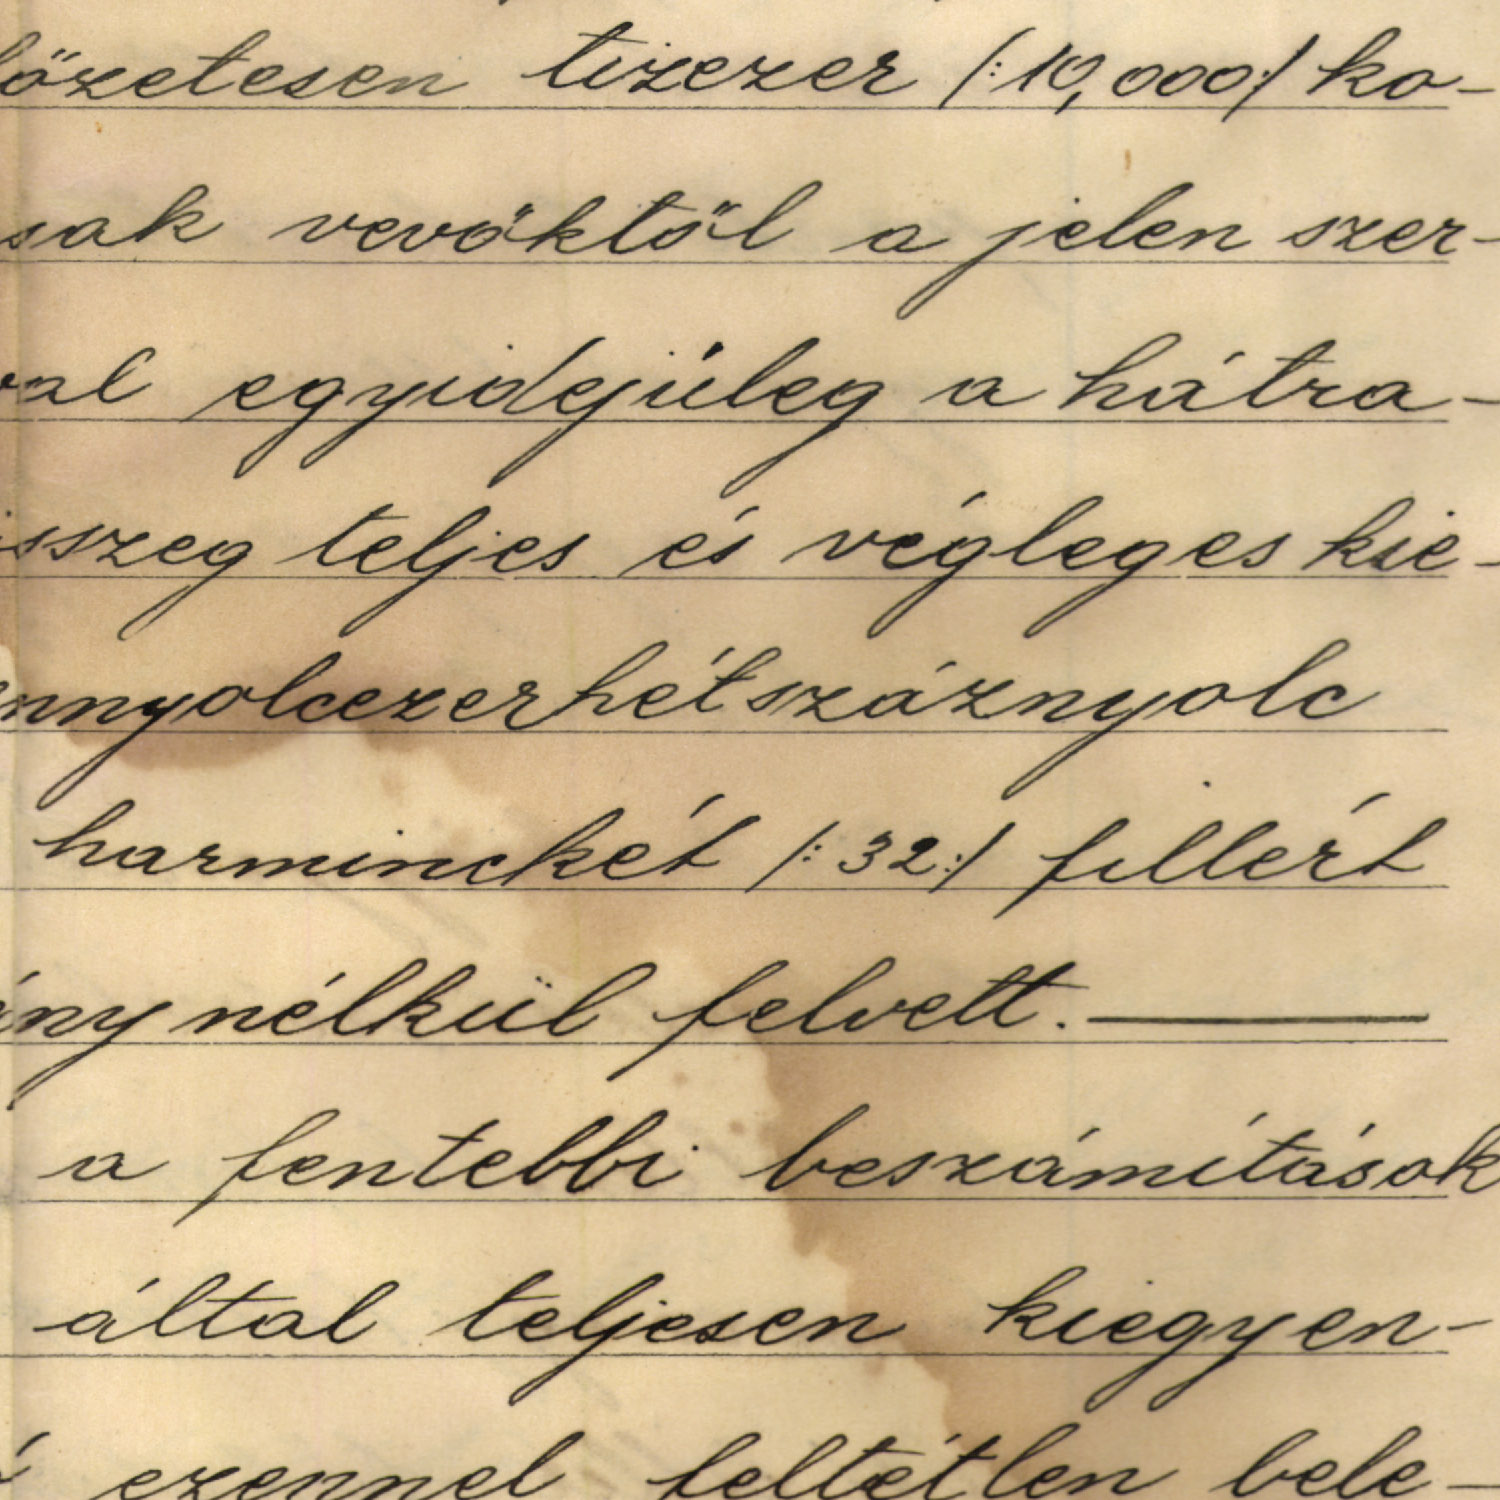 lőzetesen tizezer /:10,000:/ ko-
sak vevőktől a jelen szer-
val egyidejűleg a hátra-
összeg teljes és végleges kie-
nnyolcezerhétszáznyolc
harminckét /:32:/ fillért
ány nélkül felvett.
a fentebbi beszámítások
által teljesen kiegyen-
ezennel feltétlen bele-